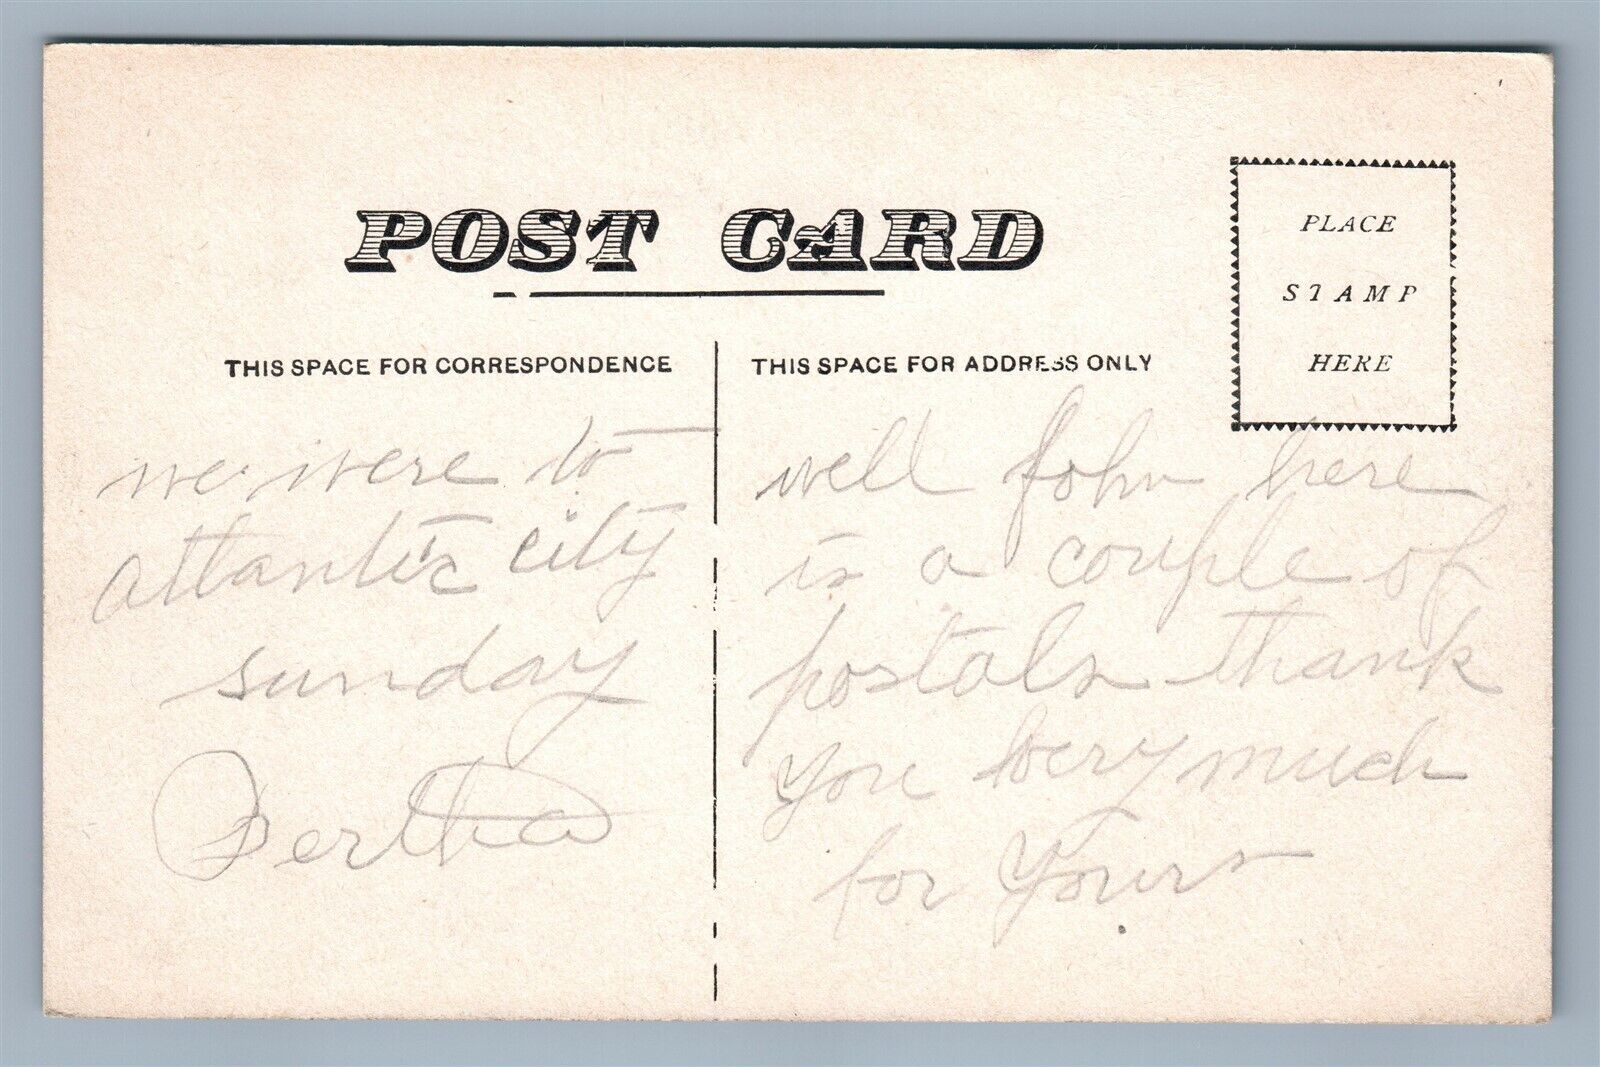 POST CARD
PLACE
STAMP
HERE
THIS SPACE FOR CORRESPONDENCE
THIS SPACE FOR ADDRESS ONLY
we were to
atlantic city
sunday
Bertha
well John here
is a couple of
postals thank
you very much
for yours